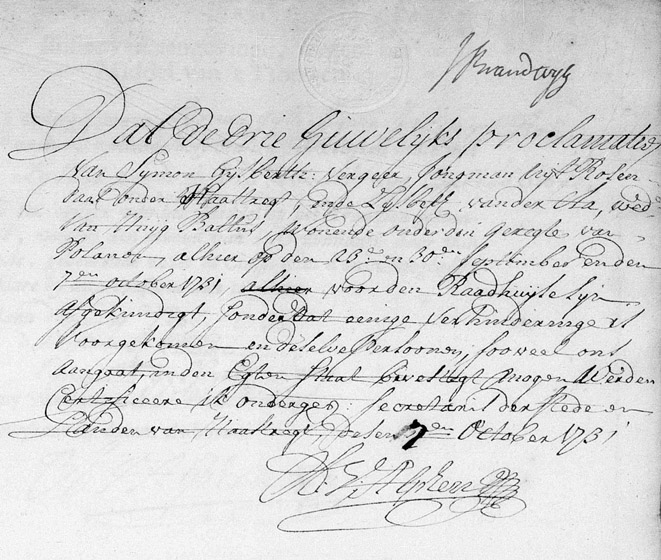 JBrandwyk
Dat de drie Huwelyks proclamatien
van Symon Gijsbertse: vergeer, Jongman uyt Rosen
daal onder Haastregt, ende Lijsbet vander Aa, wed:
van Huijg Baltus, wonende onder din geregte van
Polanen, alhier op den 23e: en 30en: September en den
7en october 1731, alhier voor den Raadhuyse syn
afgekundigt, sonder dat eenige verhinderinge is
voorgekomen en deselve Persoonen, soo veel ons
aengaat, in den Egten Staat bevestigt mogen werden
Certificeere ik onderges: Secretaris der stede en
Landen van Haastregt, desen 7en October 1731
V. Alphen